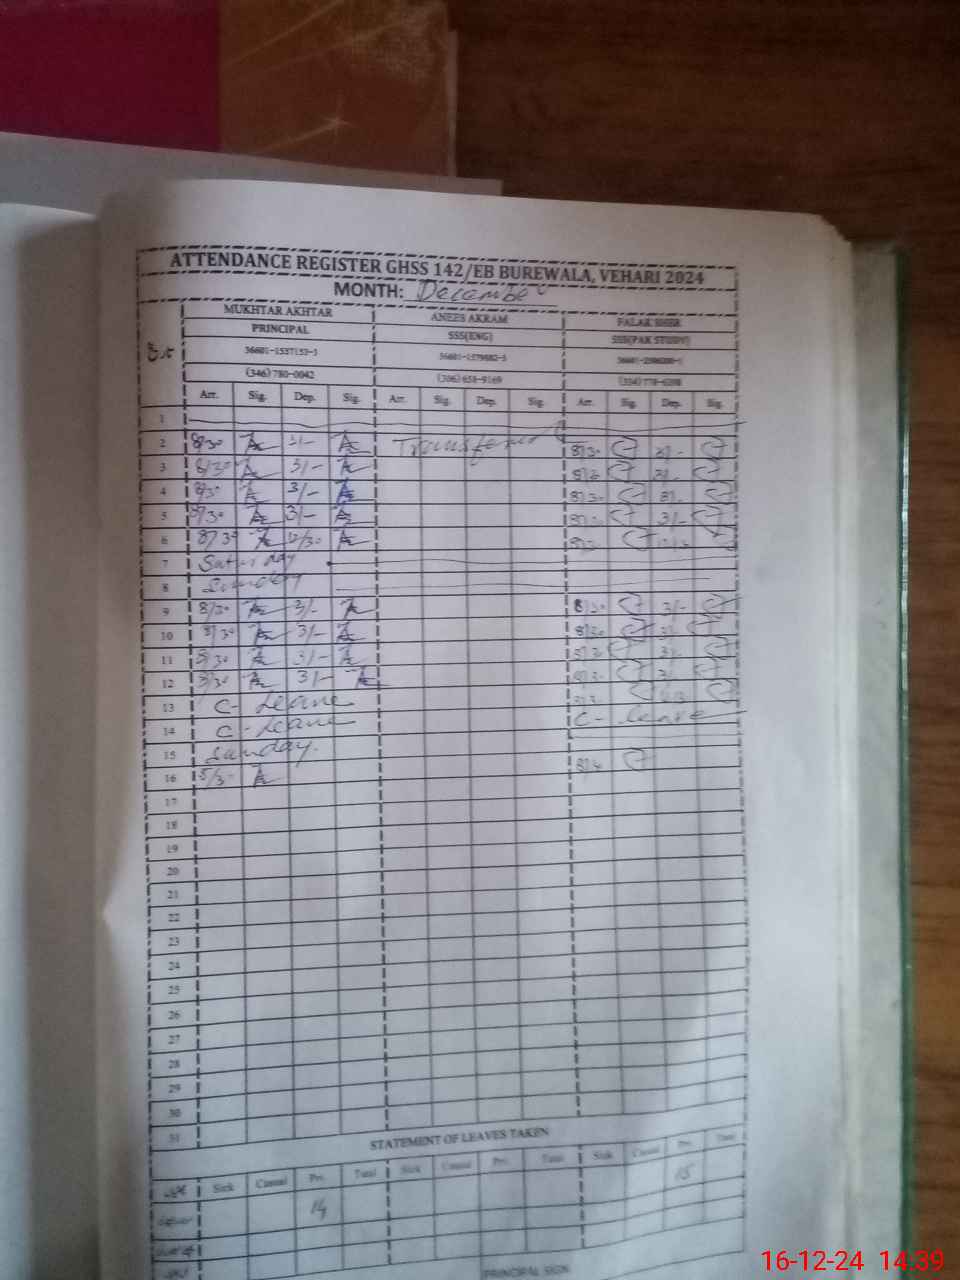 ATTENDANCE REGISTER GHSS 142/EB BUREWALA, VEHARI 2024
MONTH: December
MUKHTAR AKHTAR ANEES AKRAM FALAK SHER
PRINCIPAL SSS(ENG) SSS(PAK STUDY)
(346) 780-0042
Arr. Sig. Dep. Sig. Arr. Sig. Dep. Sig. Arr. Sig. Dep. Sig.
1
2 8/30 3/- Transferred 8/30 3/-
3 8/30 3/- 8/30 3/-
4 8/30 3/- 8/30 3/-
5 8/30 3/- 8/30 3/-
6 8/30 12/30 8/30
7 Saturday
8 Sunday
9 8/30 3/- 8/30 3/-
10 8/30 3/- 8/30 3/-
11 8/30 3/- 8/30 3/-
12 8/30 3/- 8/30 3/-
13 C-Leave
14 C-Leave C-leave
15 Sunday.
16
17
18
19
20
21
22
23
24
25
26
27
28
29
30
31
STATEMENT OF LEAVES TAKEN
Sick Casual Pri. Total Sick Casual Pri. Total Sick Casual Pri. Total
14 15
PRINCIPAL SIGN
16-12-24 14:39